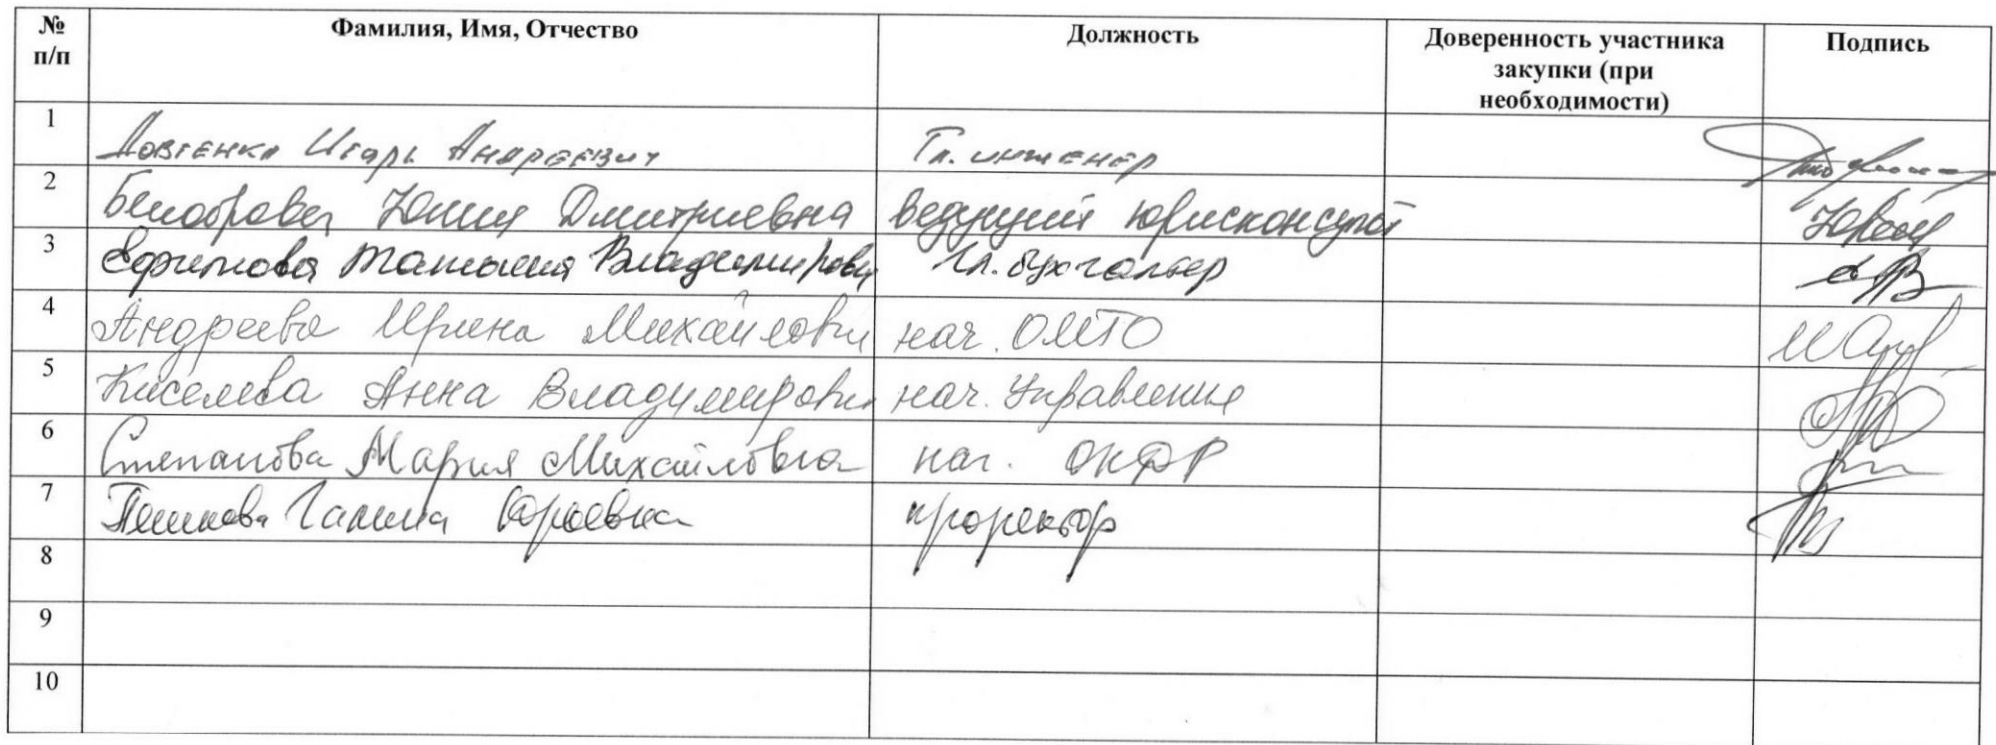 № п/п Фамилия, Имя, Отчество Должность Доверенность участника закупки (при необходимости) Подпись
1 Довгенко Игорь Андреевич Гл. инженер
2 Белобровец Юлия Дмитриевна ведущий юрисконсульт
3 Ефимова Татьяна Владимировн Гл. бухгалтер
4 Андреева Ирина Михайловн нач. ОМТО
5 Киселева Анна Владимировн нач. Управления
6 Степанова Мария Михайловна нач. ОКФР
7 Галина Юрьевна проректор
8
9
10